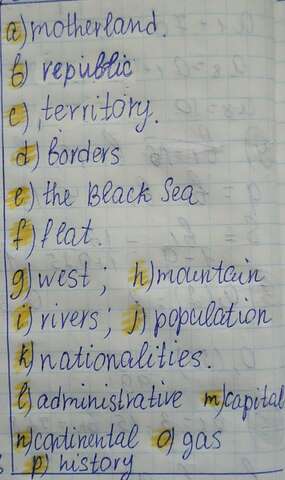 a) motherland.
b) republic
c) territory.
d) borders
e) the Black Sea
f) flat.
g) west; h) mountain
i) rivers; j) population
k) nationalities.
l) administrative m) capital
n) continental o) gas
p) history